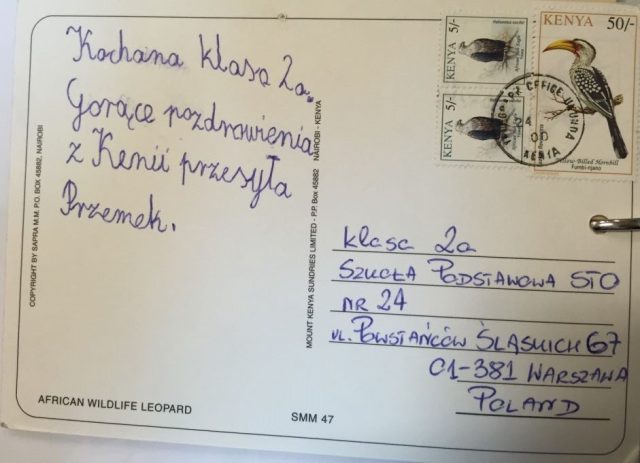 Kochana klasa 2a.
Gorące pozdrowienia
z Kenii przesyła
Przemek.
COPYRIGHT BY SAPRA M.M. P.O. BOX 45882, NAIROBI
AFRICAN WILDLIFE LEOPARD
SMM 47
MOUNT KENYA SUNDRIES LIMITED - P.P. Box 45882 NAIROBI - KENYA
KENYA 5/-
KENYA 5/-
KENYA 50/-
Yellow-Billed Hornbill
Fumbi-njano
POST OFFICE
24
00
KENYA
klasa 2a
SZKOŁA PODSTAWOWA STO
NR 24
ul. POWSTAŃCÓW ŚLĄSKICH 67
01-381 WARSZAWA
POLAND